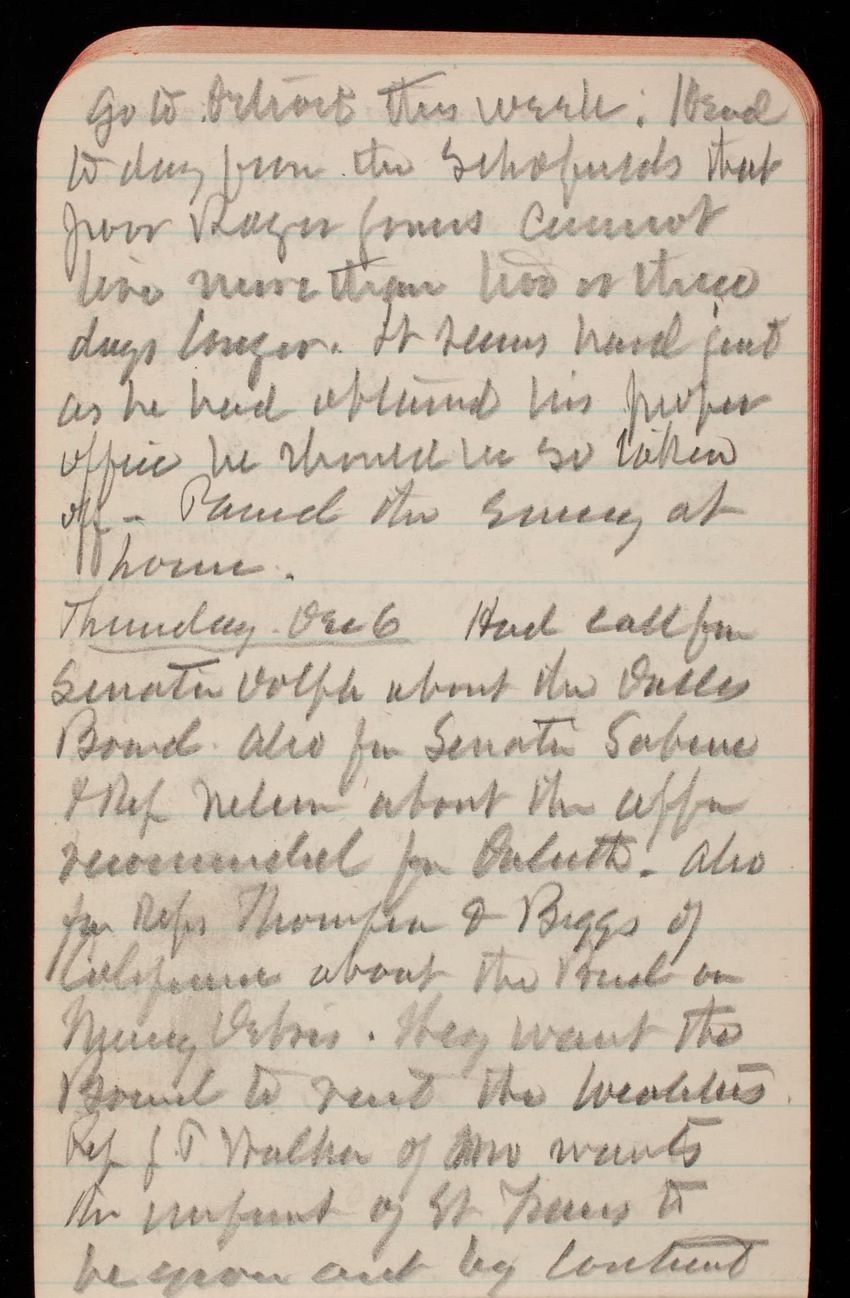 go to Detroit this week. Heard
to day from the Schofields that
poor Roger Jones cannot
live more than two or three
days longer. It seems hard just
as he had obtained his proper
office he should be so taken
off - Passed the evening at
home.
Thursday Dec 6 Had call from
Senator Dolph about the Dalles
Board. Also from Senator Sabin
& Rep Nelson about the
recommended for Duluth. Also
for Reps Thompson & Biggs of
California about the Board on
Mining Debris. They want the
Board to visit the localities.
Rep J. T Walker of Mo wants
the of St Francis to
be given out by contract